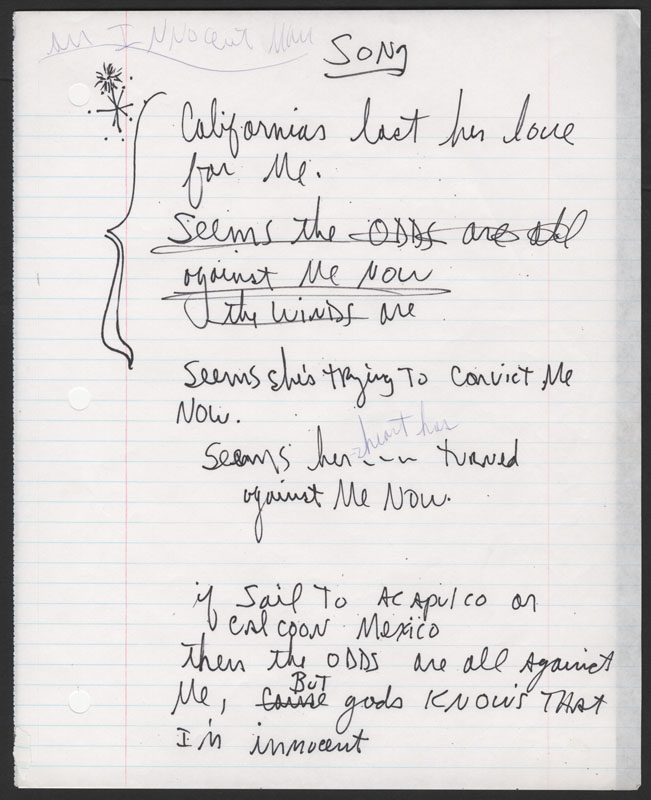 an Innocent Man
SONG
Californias lost her love
for Me.
Seems the ODDS are all
against Me Now
the WINDS are
Seems she's trying To Convict Me
Now.
heart has
Seems her turned
against Me Now.
if Sail To Acapulco or
Calcoon Mexico
then the ODDS are all against
BUT
Me, Cause gods KNOWS THAT
I'm innocent